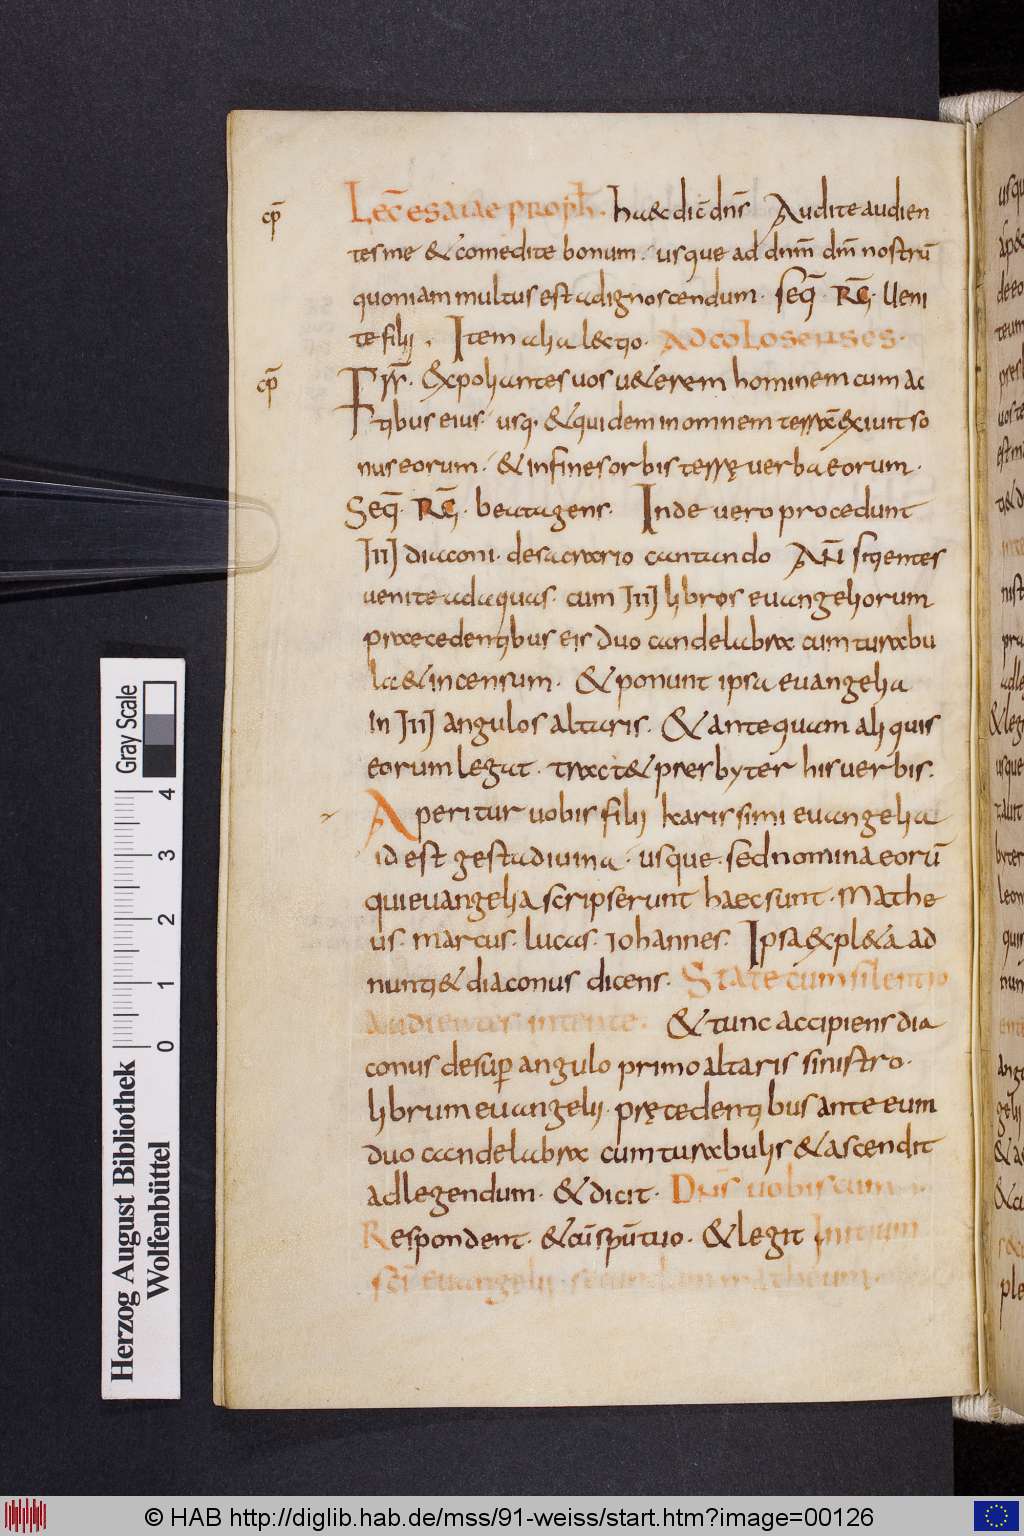 cp̄
Lec̄ esaiae proph̄. Ha&c dic̄ dn̄s Audite audien
tes me & comedite bonum. usque ad dnm̄ dm̄ nostrū
quoniam multus est ad ignoscendum. seq̄. RS̄. Ueni
te filii. Item alia lectio. Ad colosenses.
cp̄
Frr̄. Expoliantes uos u&erem hominem cum ac
tibus eius. usq. & quidem in omnem terram exiuit so
nus eorum. & in fines orbis terrę uerba eorum.
Seq̄. RS̄. beata gens. Inde uero procedunt
IIII diaconi. de sacrario cantando AN̄ sitientes
uenite ad aquas. cum IIII libros euangeliorum
praecedentibus eis duo candelabra cum turabu
la & incensum. & ponunt ipsa euangelia
in IIII angulos altaris. & antequam aliquis
eorum legat. tract& presbyter his uerbis.
Aperitur uobis filii karissimi euangelia
id est gesta diuina. usque. sed nomina eorū
qui euangelia scripserunt haec sunt. Mathe
us. marcus. lucas. iohannes. Ipsa expl&a ad
nunti& diaconus dicens. State cum silentio
audientes intente. & tunc accipiens dia
conus desup̄ angulo primo altaris sinistro.
librum euangelii. pręcedentibus ante eum
duo candelabra cum turabulis & ascendit
ad legendum. & dicit. Dn̄s uobiscum
Respondent. & cū sp̄u tuo. & legit Initium
sc̄i euangelii secundum matheum.
Herzog August Bibliothek
Wolfenbüttel
Gray Scale
0 1 2 3 4
© HAB http://diglib.hab.de/mss/91-weiss/start.htm?image=00126